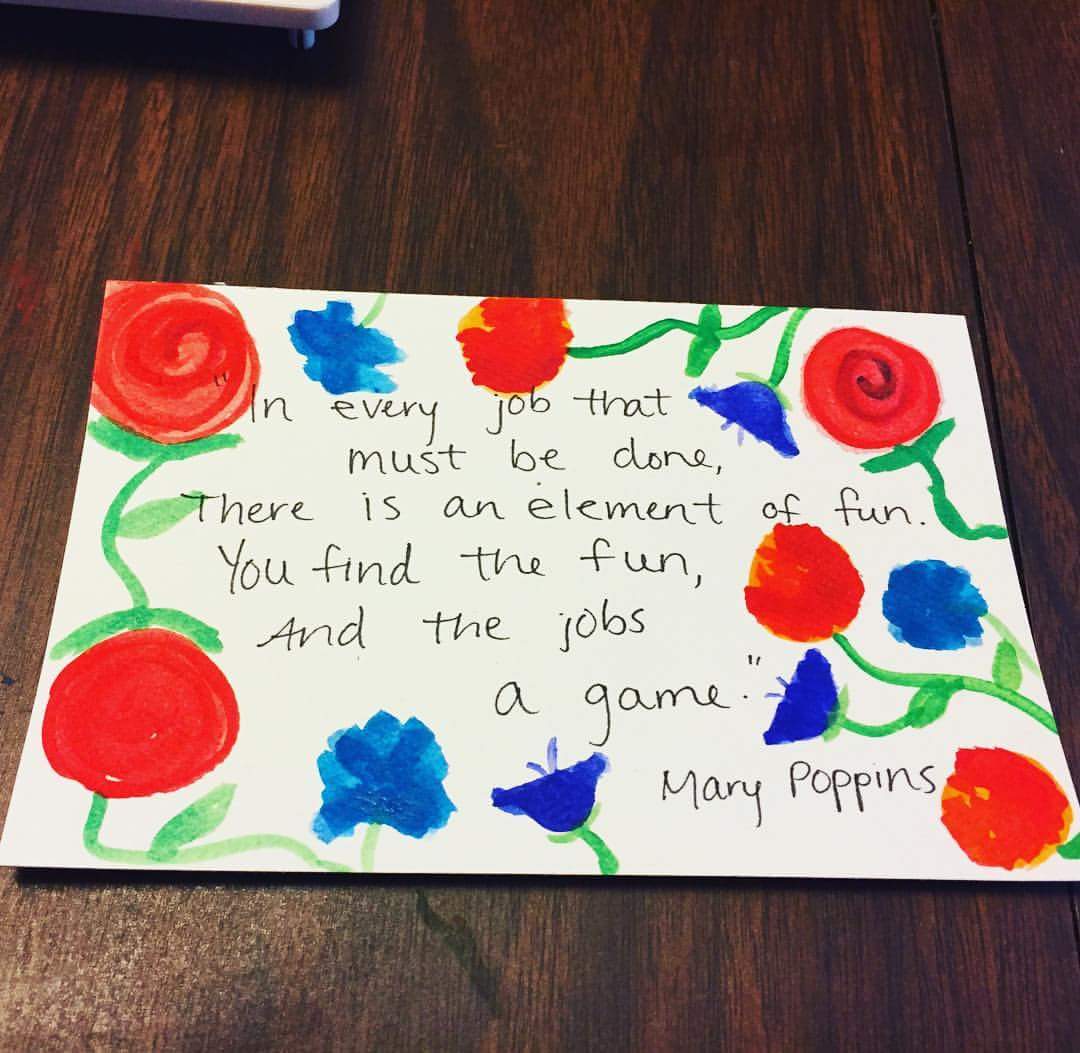 "In every job that
must be done,
There is an element of fun.
You find the fun,
And the jobs
a game."
Mary Poppins